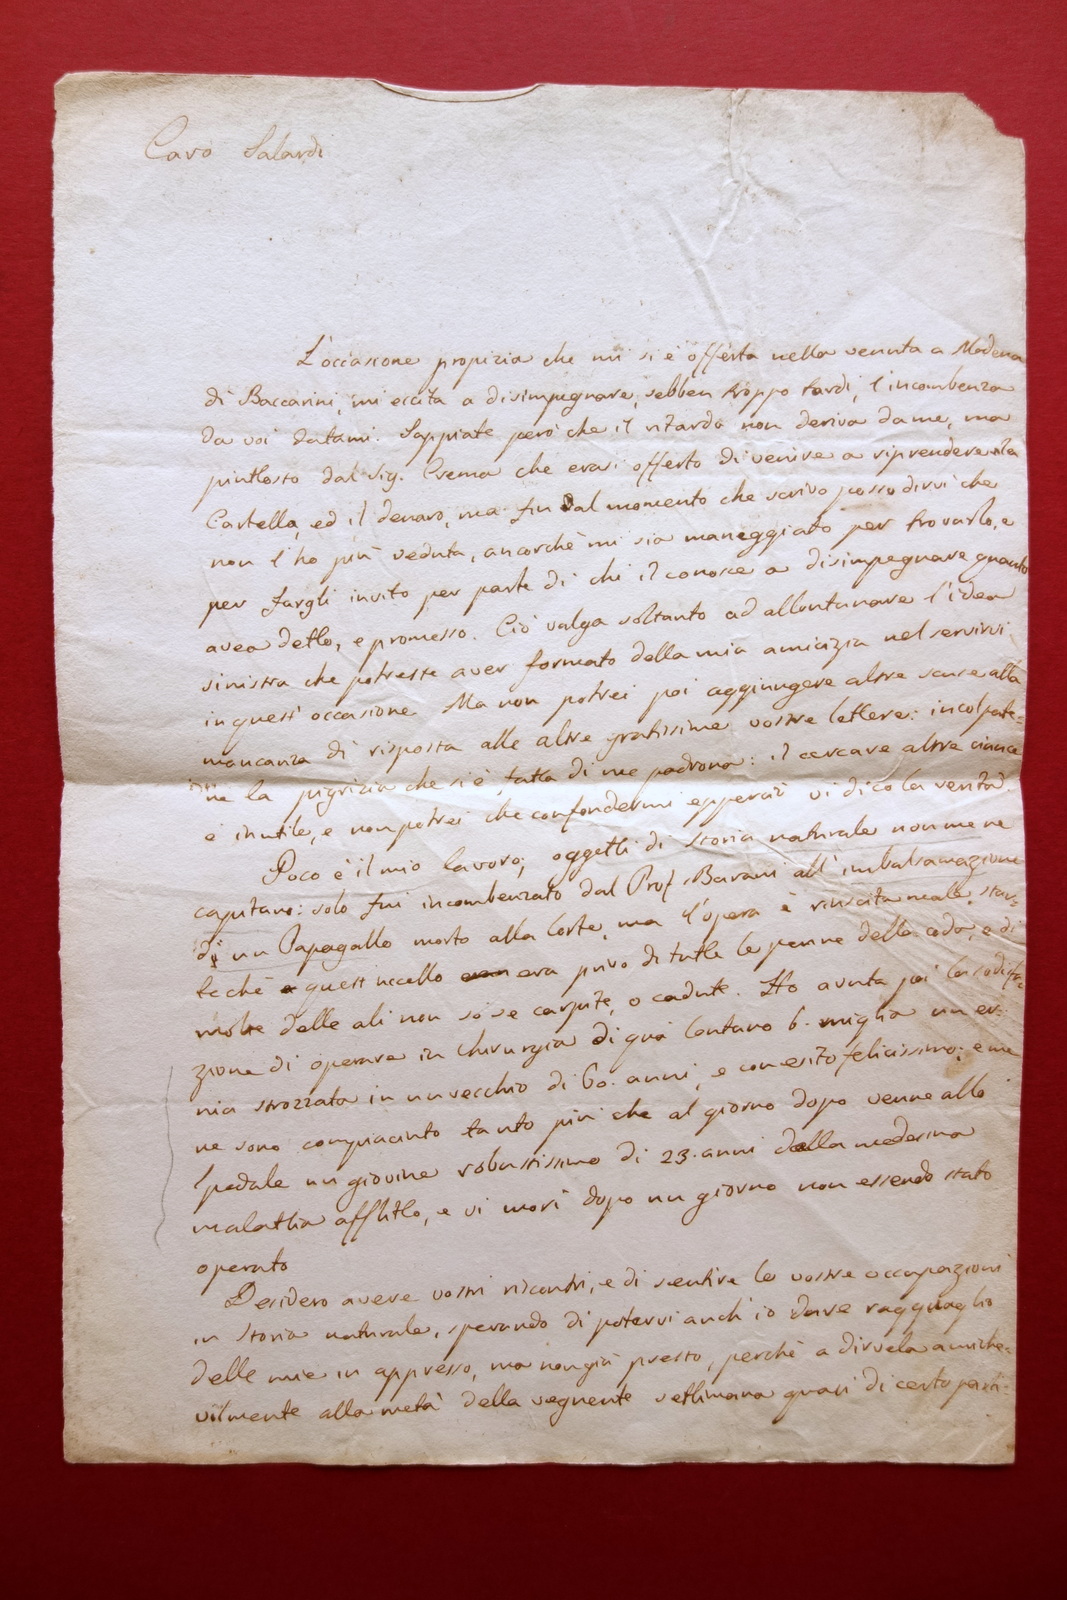 Caro Salardi
L'occasione propizia che mi si è offerta nella venuta a Modena
di Baccarini, mi eccita a disimpegnare, sebben troppo tardi, l'incombenza
da voi datami. Sappiate però che il ritardo non deriva da me, ma
piuttosto dal sig. Crema che erasi offerto di venire a riprendere la
Cartella, ed il denaro, ma fin dal momento che scrivo posso dirvi che
non l'ho più veduta, ancorchè mi sia maneggiato per trovarlo, e
per fargli invito per parte di chi il conosce a disimpegnare quanto
avea detto, e promesso. Ciò valga soltanto ad allontanare l'idea
sinistra che potreste aver formato della mia amicizia nel servirvi
in quest'occasione. Ma non potrei poi aggiungere altre scuse alla
mancanza di risposta alle altre gratissime vostre lettere: incolpate=
ne la pigrizia che si è fatta di me padrona: il cercare altre
è inutile, e non potrei che confondermi epperciò vi dico la verità.
Poco è il mio lavoro; oggetti di storia naturale non me ne
capitano: solo fui incombenzato dal Prof. Barani all'imbalsamazione
di un Papagallo morto alla Corte, ma l'opera è riuscita male, stan=
te chè quest'uccello era privo di tutte le penne della coda, e di
molte delle ali non so se carpite, o cadute. Ho avuta poi la sodisfa=
zione di operare in chirurgia di quà lontano 6. miglia un er=
nia strozzata in un vecchio di 60. anni, e con esito felicissimo; e me
ne sono compiaciuto tanto più che al giorno dopo venne allo
Spedale un giovine robustissimo di 23. anni dalla medesima
malattia afflitto, e vi morì dopo un giorno non essendo stato
operato
Desidero avere vostri riscontri, e di sentire le vostre occupazioni
in storia naturale, sperando di potervi anch'io dare ragguaglio
delle mie in appresso, ma non già presto, perchè a dirvela amiche=
vilmente alla metà della vegnente settimana quasi di certo parti=